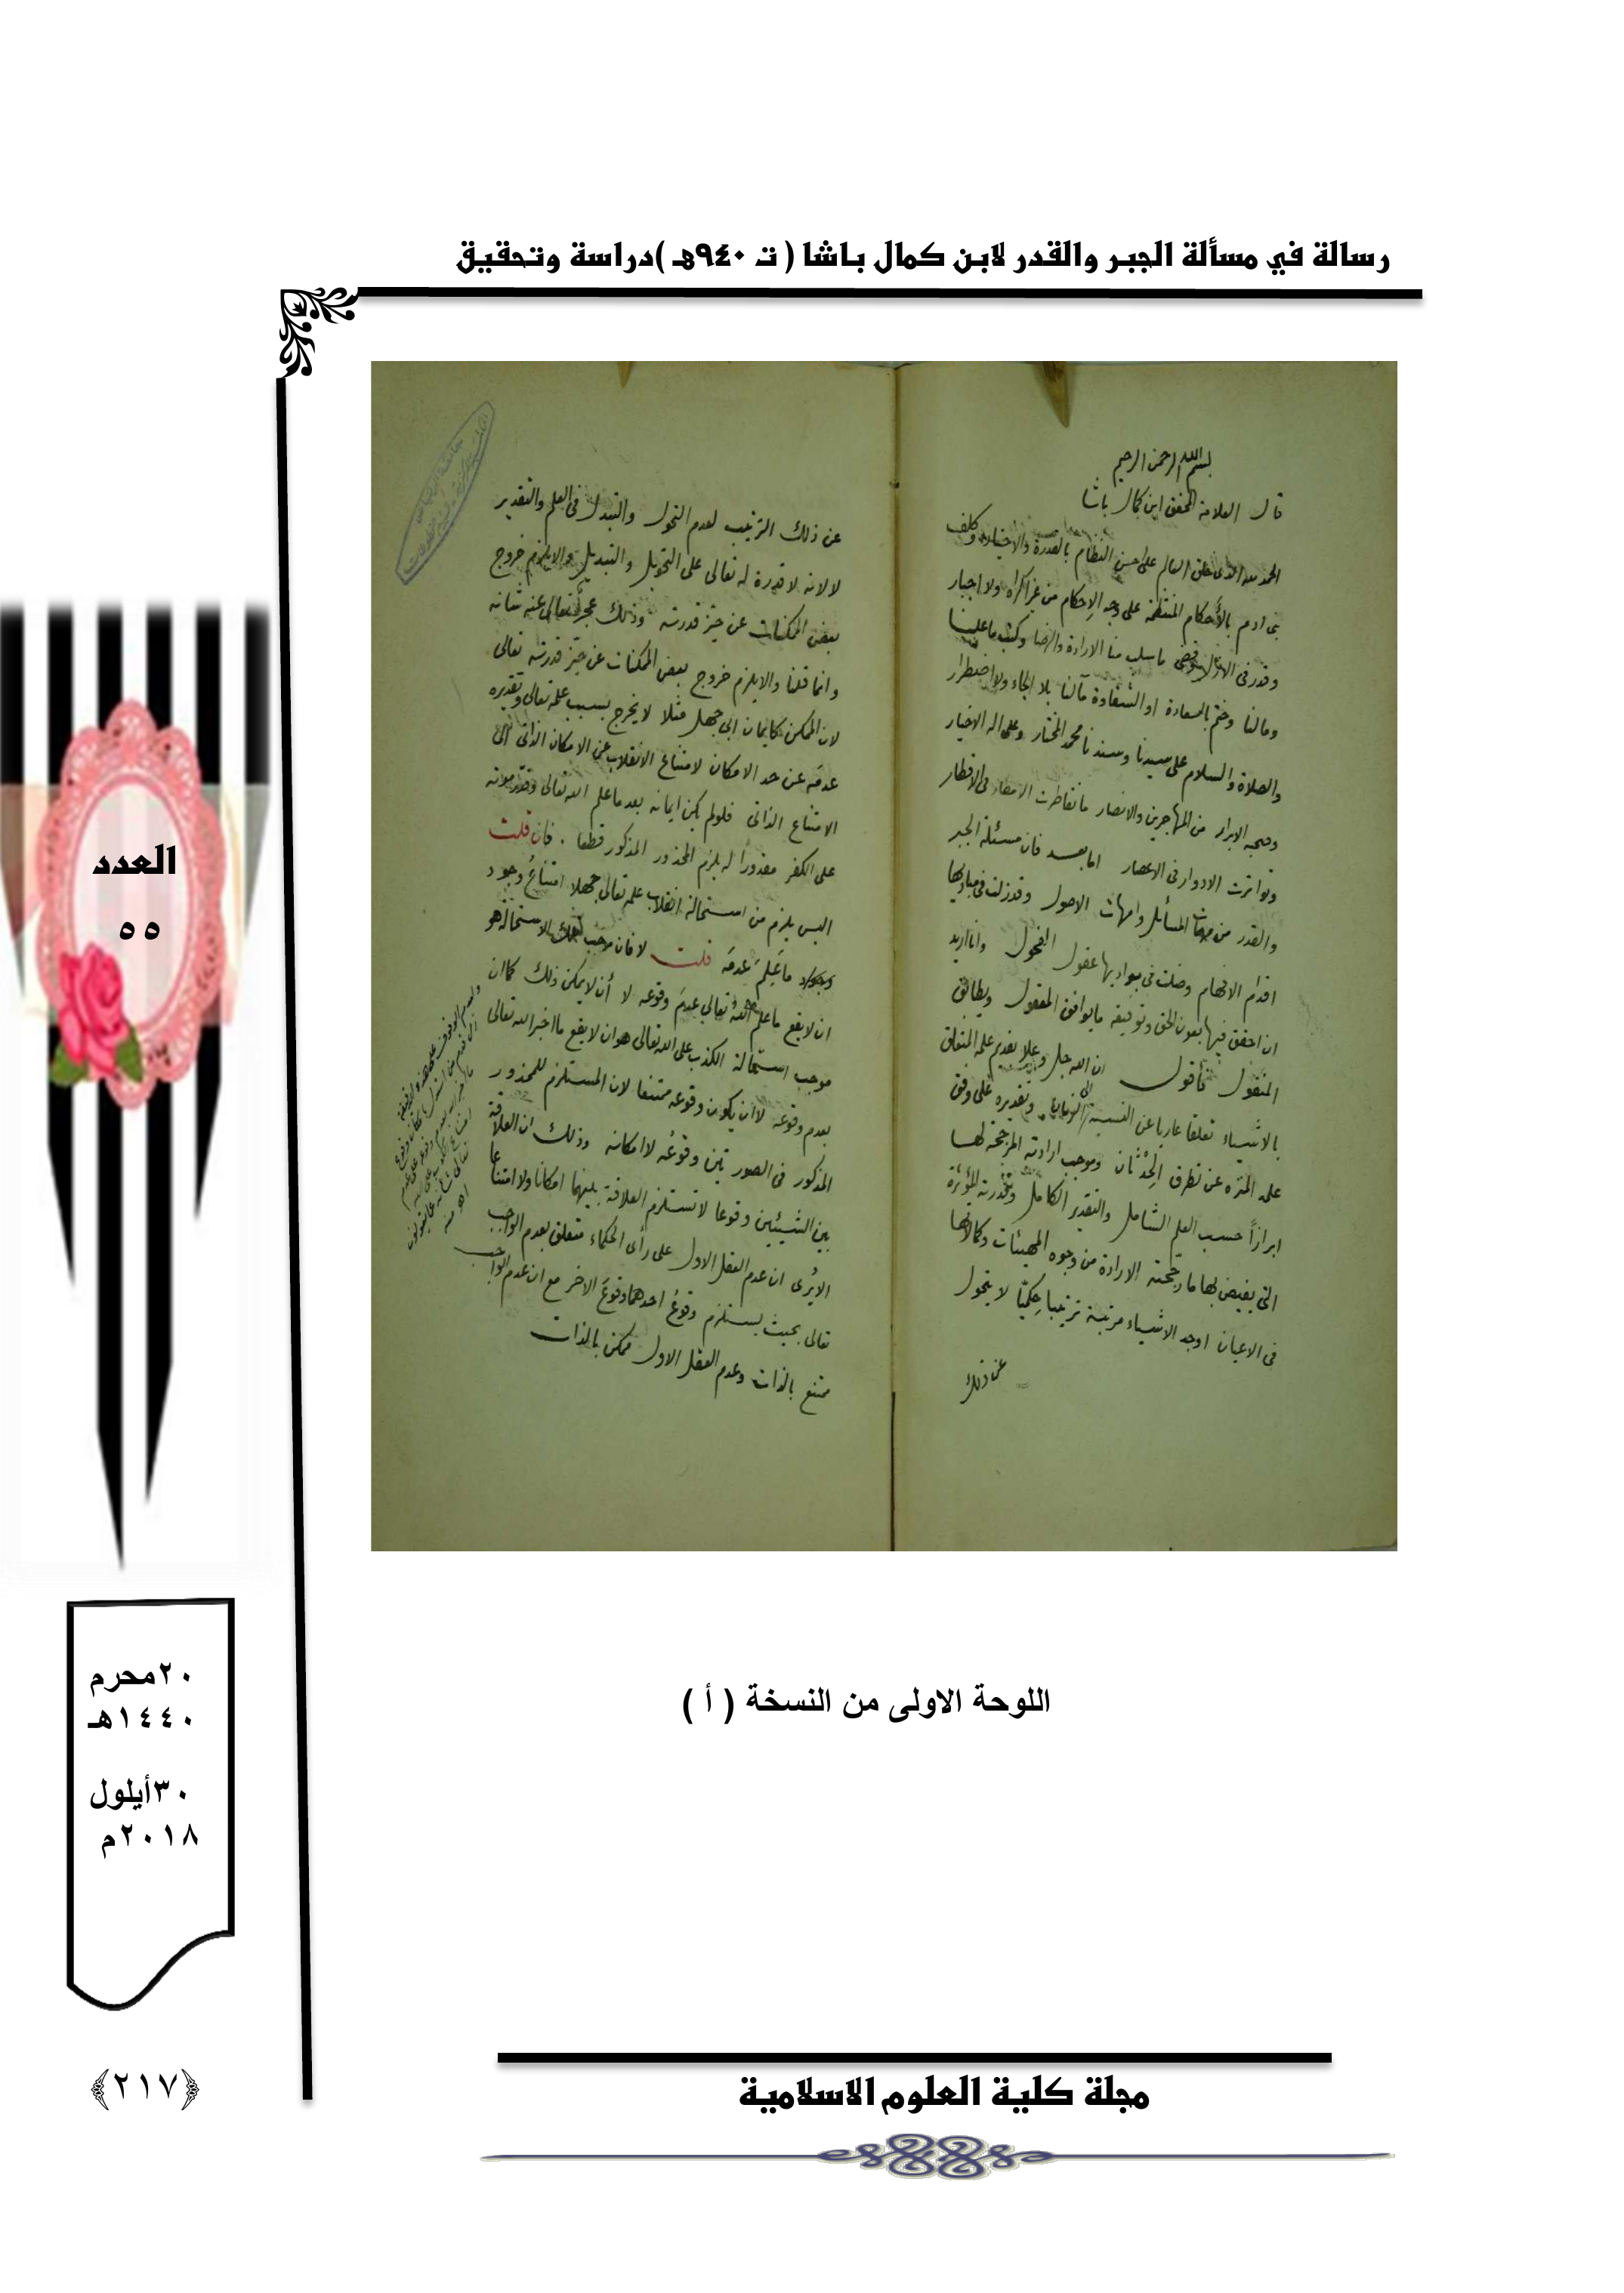 رسالة في مسألة الجبر والقدر لابن كمال باشا ( ت ٩٤٠هـ )دراسة وتحقيق
بسم الله الرحمن الرحيم
قال العلامة المحقق ابن كمال باشا
الحمد لله الذى خلق العالم على احسن النظام بالقدرة والاختيار وكلف
بنى ادم بالأحكام المنتظمة على وجه الإحكام من غير اكراه ولا اجبار
وقدر فى الازل وقضى ما سلب منا الارادة والرضا وكتب ما علينا
ومالنا وختم بالسعادة او الشقاوة مآلنا بلا الجاء ولا اضطرار
والصلاة والسلام على سيدنا وسندنا محمد المختار وعلى اله الاخيار
وصحبه الابرار من المهاجرين والانصار ما تقاطرت الامطار فى الاقطار
وتواترت الادوار فى الاعصار اما بعد فان مسئلة الجبر
والقدر من مهمات المسائل وامهات الاصول وقد زلت فى مباديها
اقدام الافهام وضلت فى بواديها عقول الفحول وانا اريد
ان احقق فيها بعون الحق وتوفيقه ما يوافق المعقول ويطابق
المنقول فأقول ان الله جل وعلا بقديم علمه المتعلق
بالاشياء تعلقا عاريا عن النسبة الى الزمان وتقديره على وفق
علمه المنزه عن تطرق الحِدْثان وموجب ارادته المرجحة لها
ابرازاً حسب العلم الشامل والتقدير الكامل وبقدرته المؤثرة
التى يفيض بها ما رجحته الارادة من وجوه المهيئات وكمالاتها
فى الاعيان اوجد الاشياء مرتبة ترتيبا حِكميّا لا يتحول
عن ذلك
عن ذلك الترتيب لعدم التحول والتبدل فى العلم والتقدير
لا لانه لا قدرة له تعالى على التحويل والتبديل والا يلزم خروج
بعض الممكنات عن حيز قدرته وذلك عجز تعالى عنه شانه
وانما قلنا والا يلزم خروج بعض الممكنات عن حيز قدرته تعالى
لان الممكن كايمان ابى جهل مثلا لا يخرج بسبب علمه تعالى وتقديره
عدمَه عن حد الامكان لامتناع الانقلاب عن الامكان الذاتى الى
الامتناع الذاتى فلو لم يكن ايمانه بعد ما علم الله تعالى وقدر موته
على الكفر مقدوراً له يلزم المحذور المذكور قطعا . فان قلت
اليس يلزم من استحالة انقلاب علمه تعالى جهلا امتناعُ وجود
ما عَلِمَ عدمَه قلت لا فان موجب تلك الاستحالة هو
ان لا يقع ما علم الله تعالى عدم وقوعه لا أن لا يمكن ذلك كما ان
موجب استحالة الكذب على الله تعالى هو ان لا يقع ما اخبر الله تعالى
بعدم وقوعه لا ان يكون وقوعه ممتنعا لان المستلزم للمحذور
المذكور فى الصورتين وقوعُه لا امكانه وذلك ان العلاقة
بين الشيئين وقوعا لا تستلزم العلاقة بينهما امكانا ولا امتناعا
الا يُرى ان عدم العقل الاول على رأى الحكماء متعلق بعدم الواجب
تعالى بحيث يستلزم وقوعُ احدهما وقوعَ الاخر مع ان عدم الواجب
ممتنع بالذات وعدم العقل الاول ممكن بالذات
العدد
٥٥
٢٠محرم
١٤٤٠هـ
٣٠أيلول
٢٠١٨م
اللوحة الاولى من النسخة ( أ )
﴿٢١٧﴾
مجلة كلية العلوم الاسلامية